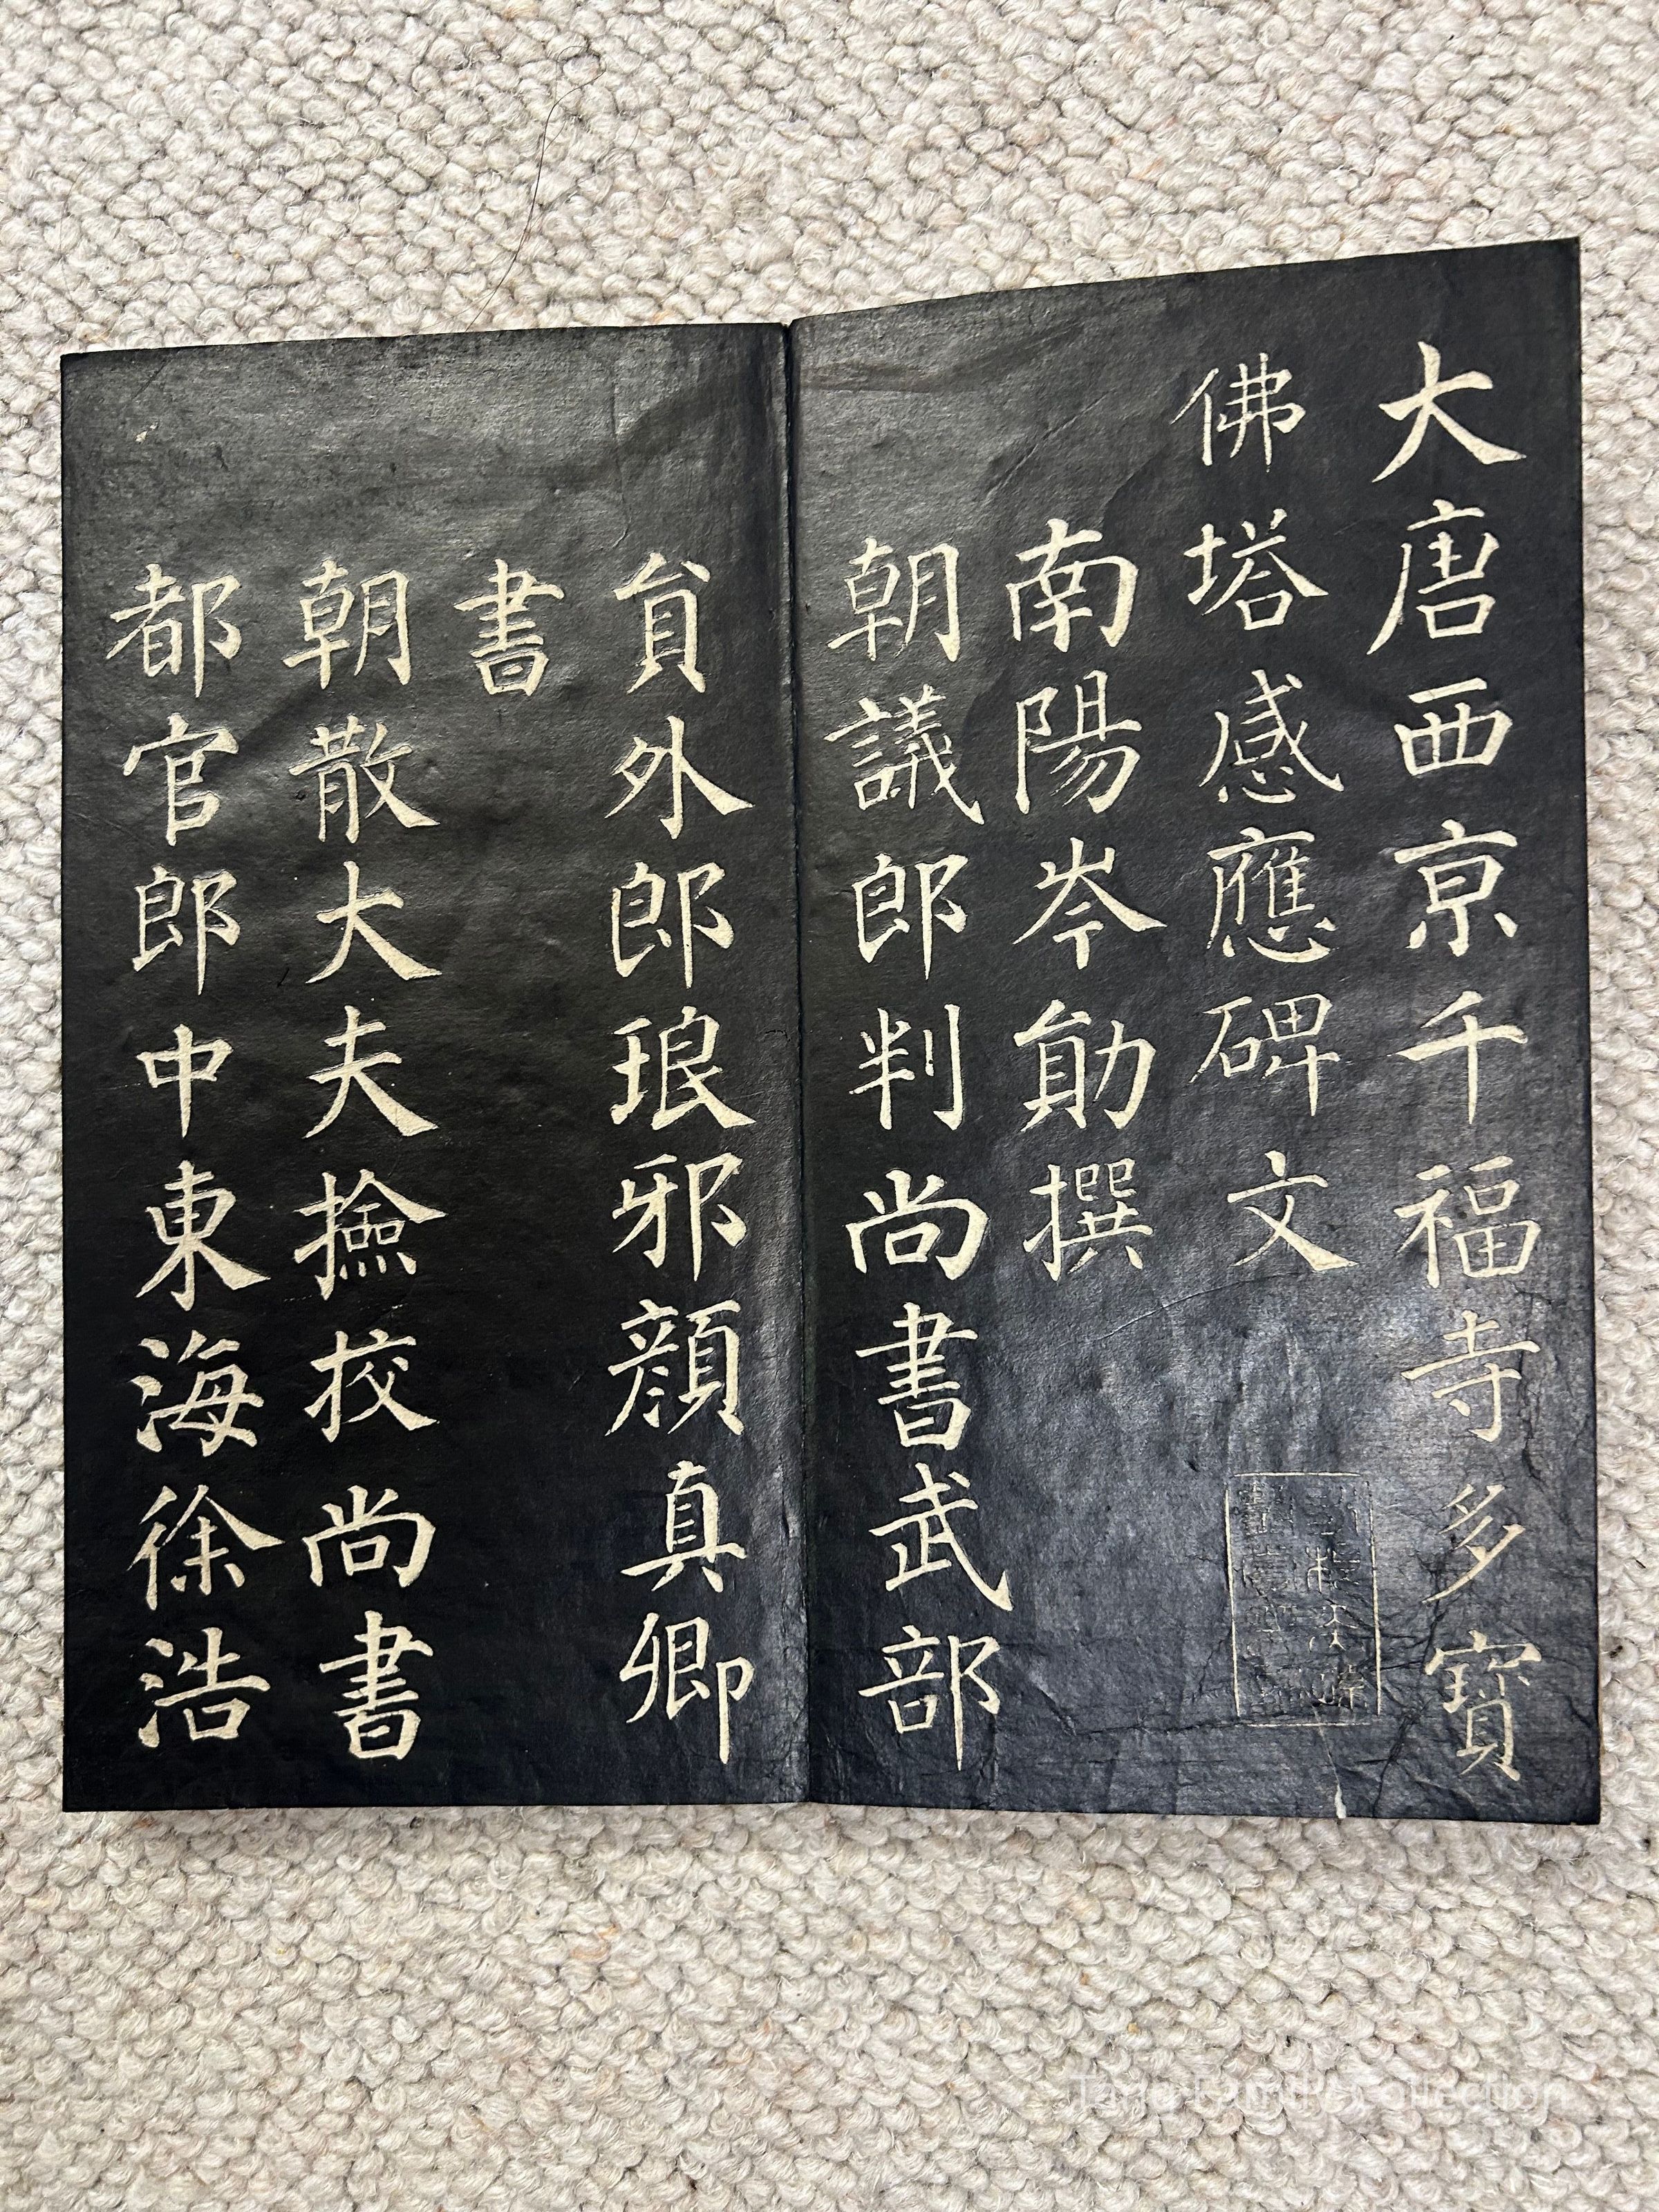 大唐西京千福寺多寶
佛塔感應碑文
南陽岑勛撰
朝議郎判尚書武部
負外郎琅邪顔真卿
書
朝散大夫撿挍尚書
都官郎中東海徐浩
Tang Family Collection